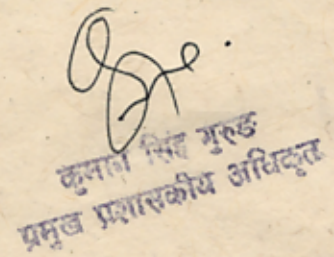 कुमान सिंह गुरुङ
प्रमुख प्रशासकीय अधिकृत